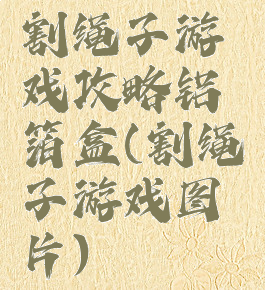 割绳子游
戏攻略铝
箔盒(割绳
子游戏图
片)